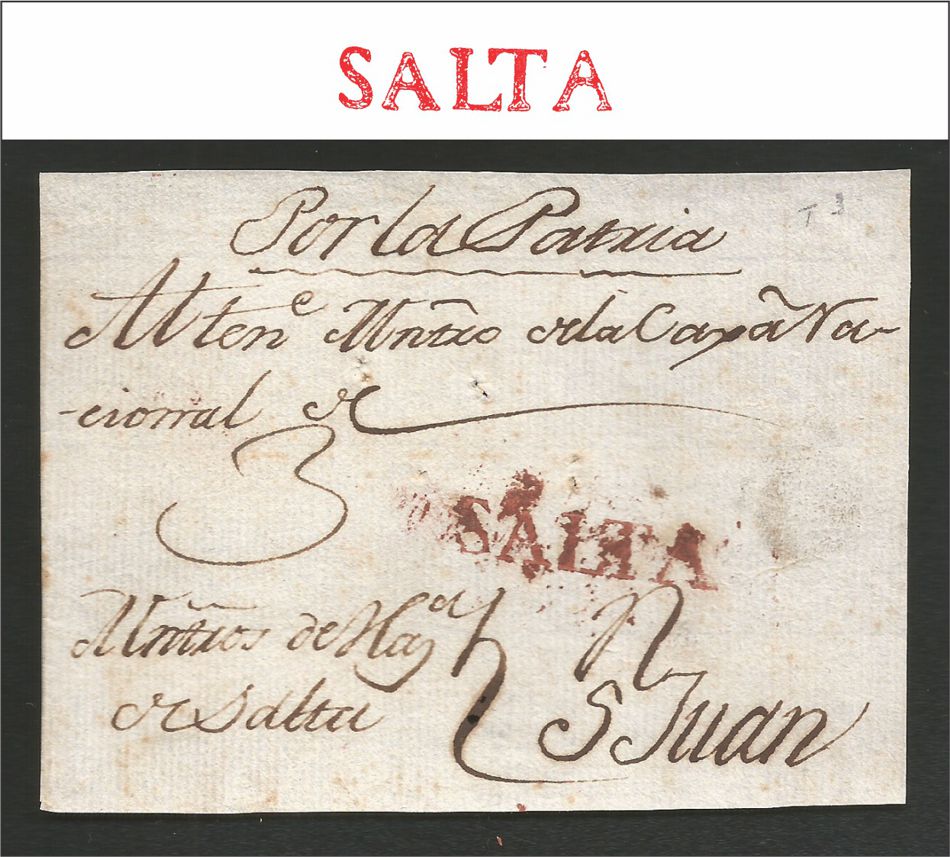 SALTA
T 3
Por la Patria
Al Tene Mntro de la Caxa Na-
-cional de
3
SALTA
Mntros de Hazda
de Salta
Sn Juan